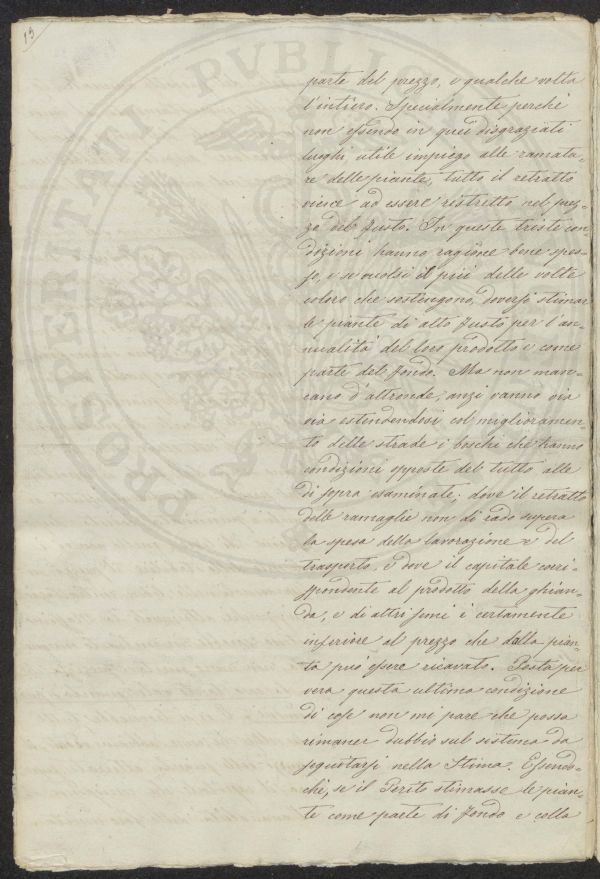 15
PROSPERITATI PVBLICAE
parte del prezzo, e qualche volta
l'intiero. Specialmente perchè
non essendo in quei disgraziati
luoghi utile impiego alle ramatu,
re delle piante, tutto il retratto
viene ad essere ristretto nel prez-
zo del fusto. In queste triste con
dizioni hanno ragione bene spes-
so, e se vuolsi il più delle volte
coloro che sostengono, doversi stimar
le piante di alto fusto per l'an-
nualità del loro prodotto e come
parte del fondo. Ma non man-
cano d'altronde, anzi vanno via
via estendendosi col miglioramen-
to delle strade i boschi che hanno
condizioni opposte del tutto alle
di sopra esaminate; dove il retratto
delle ramaglie non di rado supera
la spesa della lavorazione e del
trasporto, e dove il capitale corri-
spondente al prodotto della ghian-
da, e di altri semi è certamente
inferiore al prezzo che dalla pian-
ta può essere ricavato. Posta per
vera questa ultima condizione
di cose non mi pare che possa
rimaner dubbio sul sistema da
seguitarsi nella Stima. Essendo-
chè, se il Perito stimasse le pian-
te come parte di fondo e colla